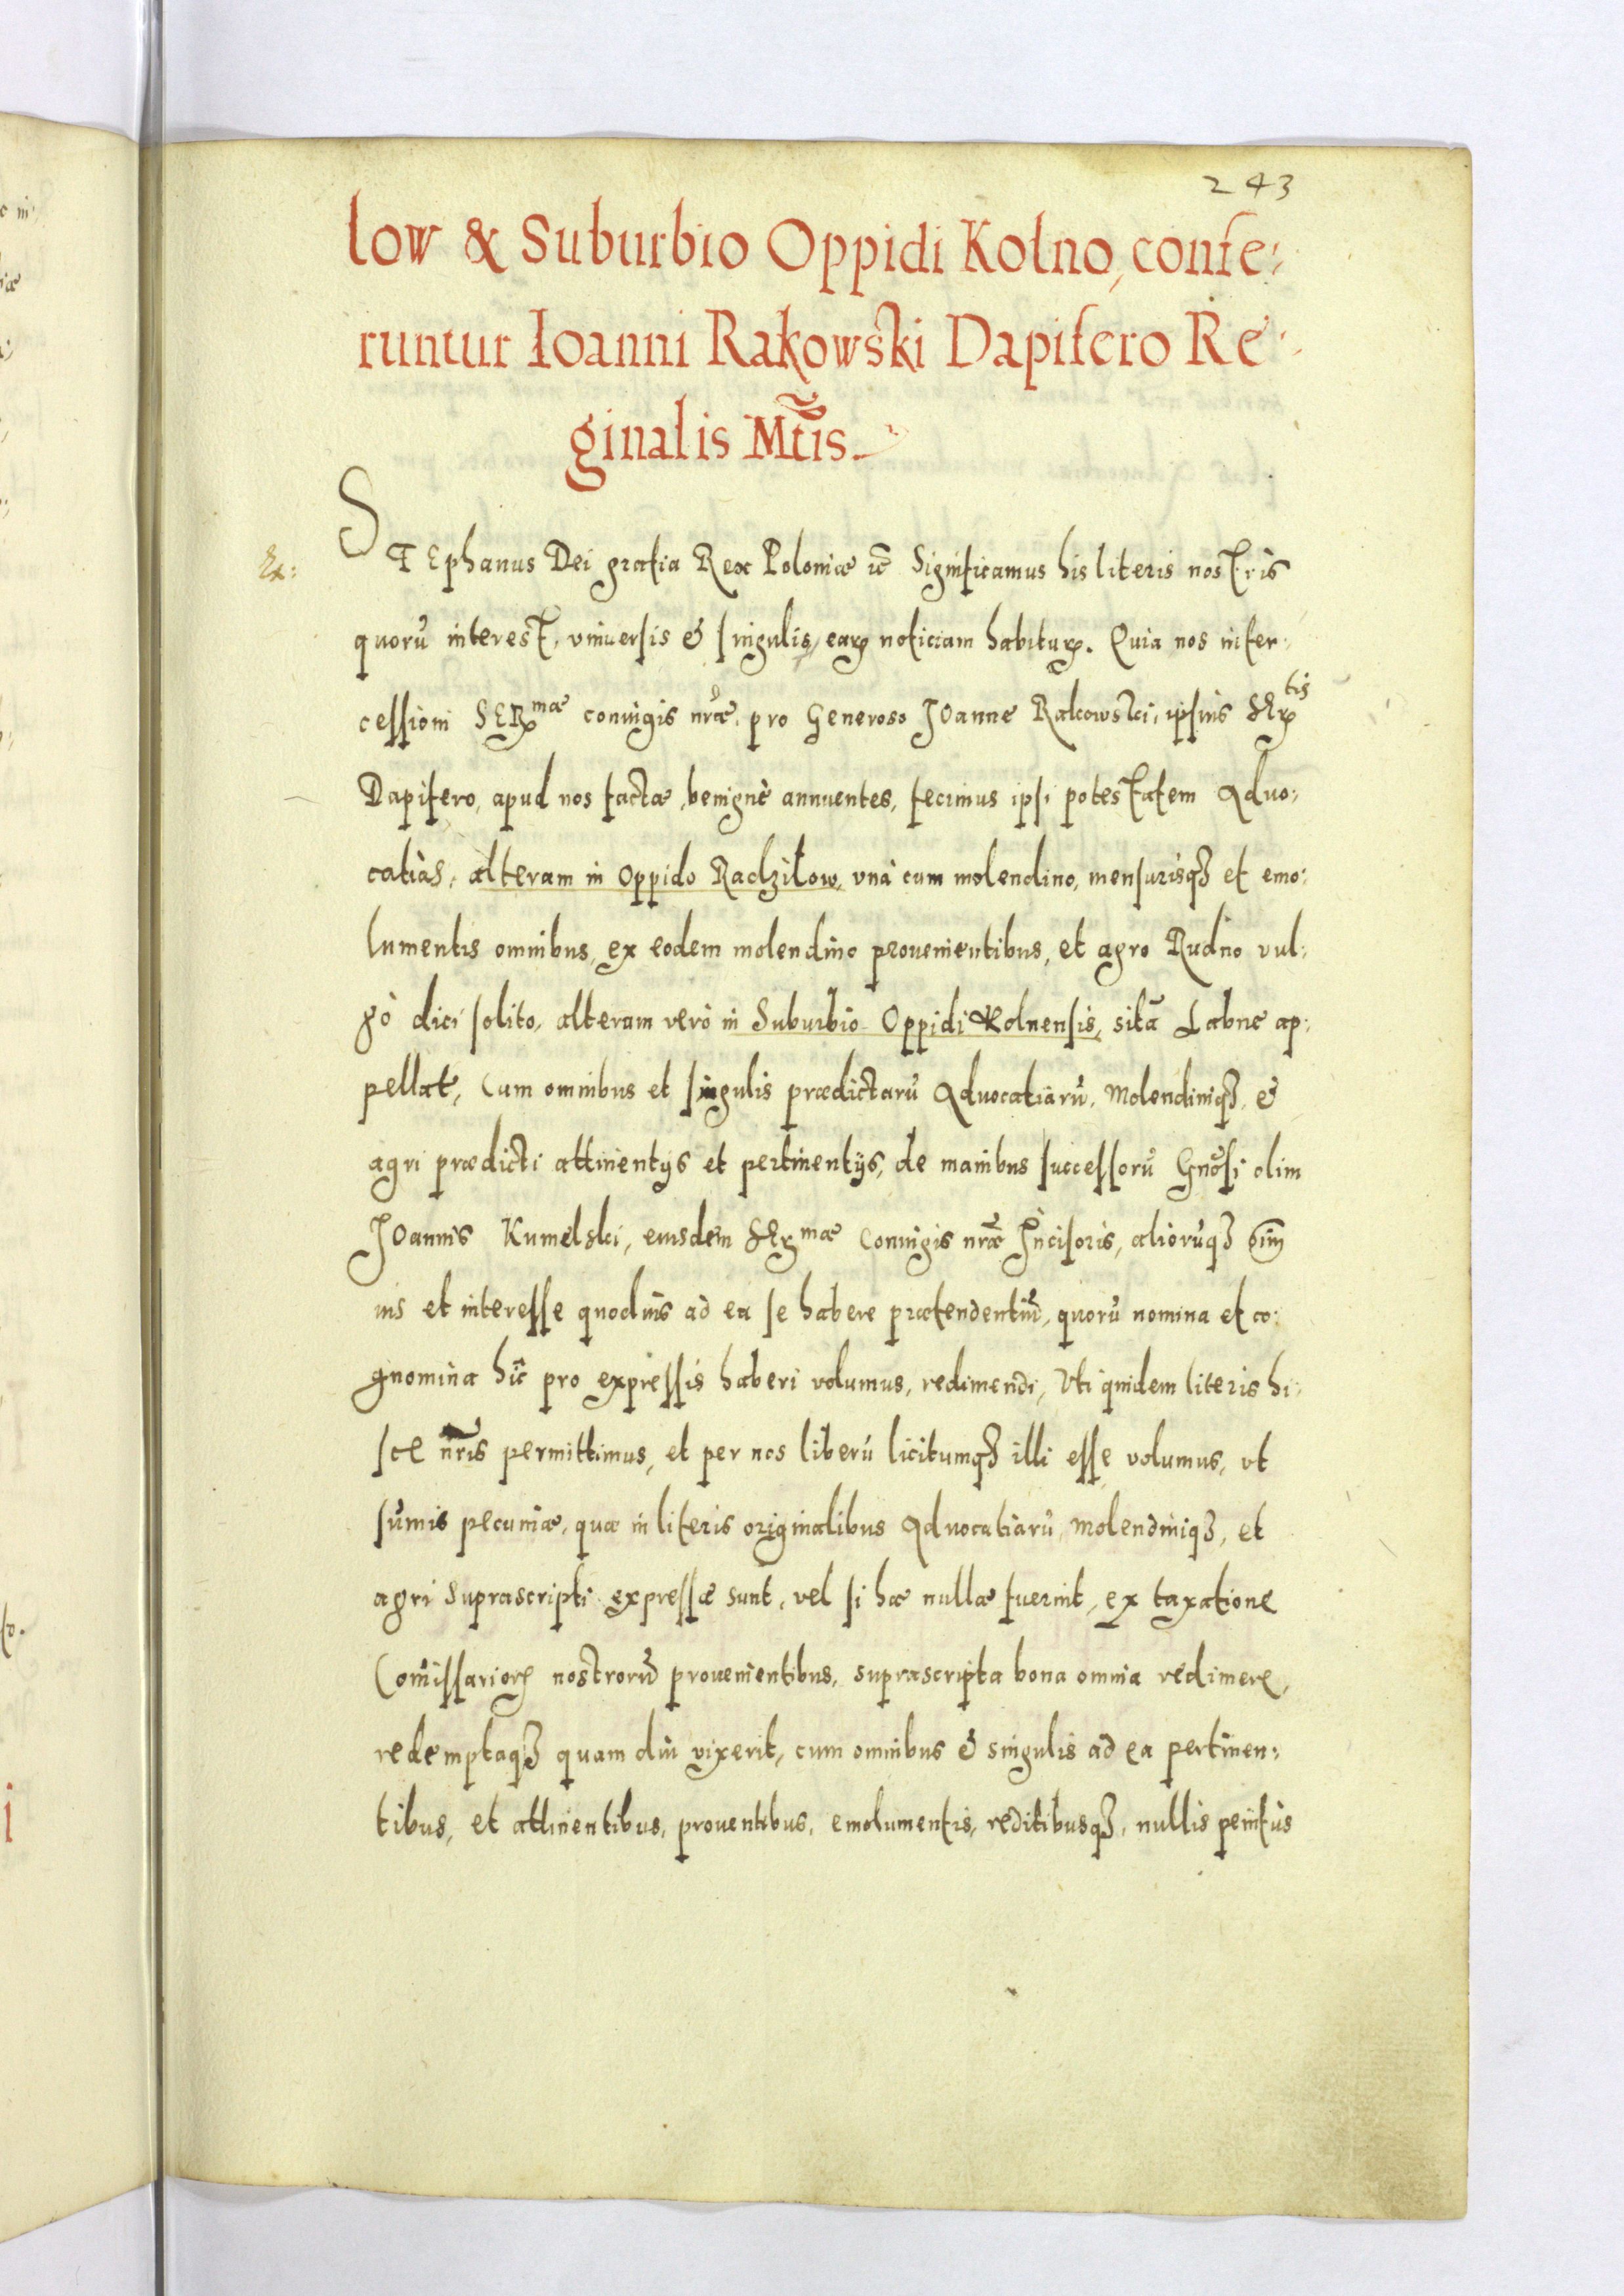 243
low & Suburbio Oppidi Kolno, confe:
runtur Ioanni Rakowski Dapifero Re:
ginalis Mt̃is.
Ex:
STEphanus Dei gratia Rex Poloniæ &c̃ Significamus his literis nostris
quorũ interest, vniuersis & singulis, earꝝ noticiam habiturꝝ. Quia nos inter:
cessioni SERꝝmæ coniugis nr̃æ, pro Generoso Joanne Rakowski, ipsius SErꝝtis
Dapifero, apud nos factæ, benignè annuentes, fecimus ipsi potestatem Aduo:
catias, alteram in Oppido Radzilow, vnà cum molendino, mensurisqꝫ et emo:
lumentis omnibus, ex eodem molendino prouenientibus, et agro Rudno vul:
gò dici solito, alteram verò in Suburbio Oppidi Kolnensis, sitã Labne ap:
pellat, Cum omnibus et singulis prædictarũ Aduocatiarũ, Molendiniqꝫ, &
agri prædicti attinentijs et pertinentijs, de manibus successorũ Gnõsi olim
Joannis Kumelski, eiusdem SErꝝmæ Coniugis nr̃æ Incisoris, aliorũqꝫ õim
ius et interesse quoduis ad ea se habere prætendentiũ, quorũ nomina et co:
gnomina hic pro expressis haberi volumus, redimendi, Vti quidem literis hi:
sce nr̃is permittimus, et per nos liberũ licitumqꝫ illi esse volumus, vt
sũmis pecuniæ, quæ in literis originalibus Aduocatiarũ, Molendiniqꝫ, et
agri suprascripti expressæ sunt, vel si hæ nullæ fuerint, ex taxatione
Com̃issariorꝝ nostrorũ prouenientibus, suprascripta bona omnia redimere,
redemptaqꝫ quam diu vixerit, cum omnibus & singulis ad ea pertinen:
tibus, et attinentibus, prouentibus, emolumentis, reditibusqꝫ, nullis penitùs